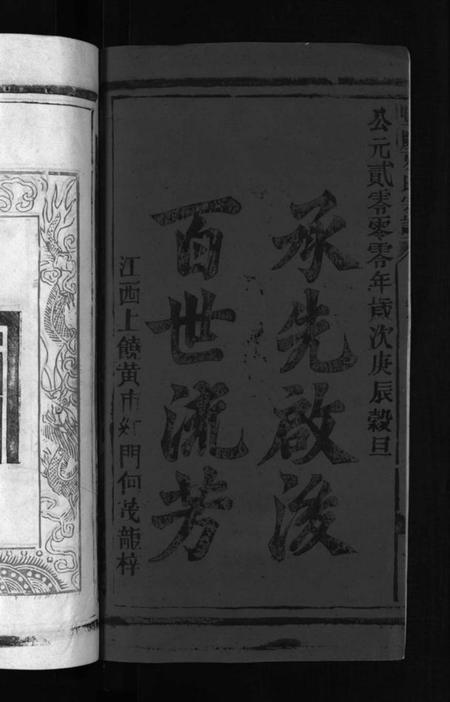 公元貳零零零年歲次庚辰穀旦
承先啟後
百世流芳
江西上饒黄市 門何茂龍梓